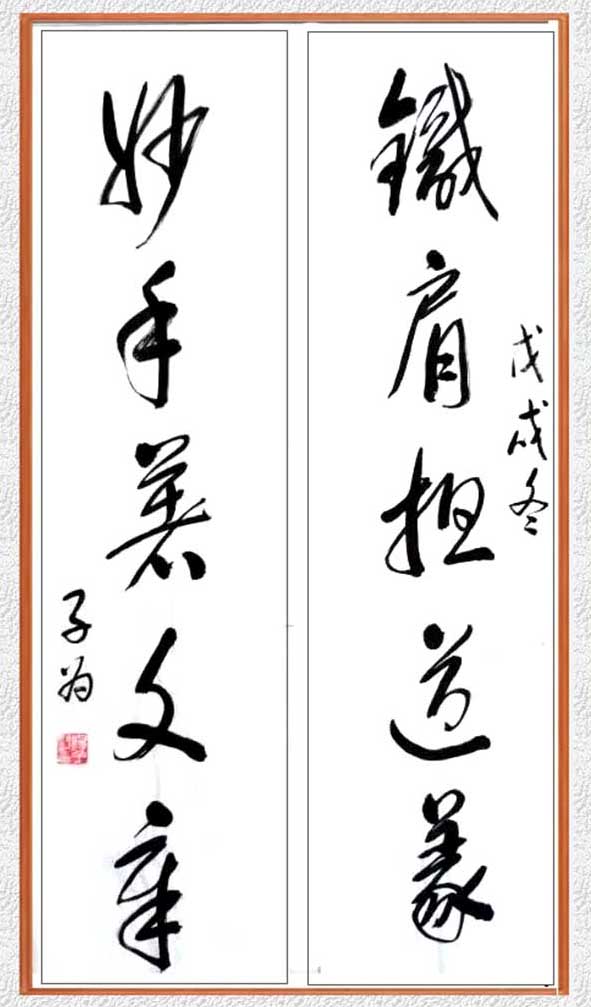 鐵肩担道義
戊戌冬
妙手著文章
子为